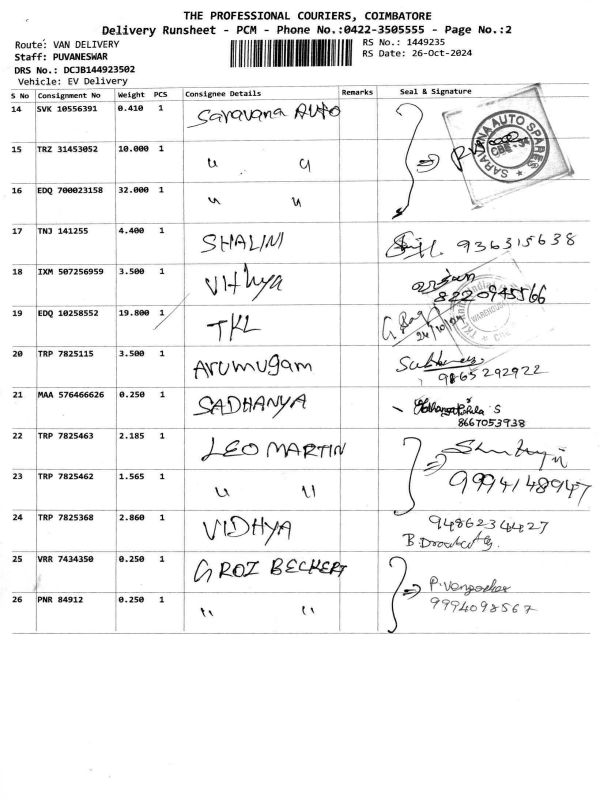 THE PROFESSIONAL COURIERS, COIMBATORE
Delivery Runsheet - PCM - Phone No.:0422-3505555 - Page No.:2
Route: VAN DELIVERY
RS No.: 1449235
Staff: PUVANESWAR
RS Date: 26-Oct-2024
DRS No.: DCJB144923502
Vehicle: EV Delivery
S No Consignment No Weight PCS Consignee Details Remarks Seal & Signature
14 SVK 10556391 0.410 1 Saravana Auto
SARAVANA AUTO SPARES CBE - 34
15 TRZ 31453052 10.000 1 " "
16 EDQ 700023158 32.000 1 " "
17 TNJ 141255 4.400 1 SHALINI 936315638
18 IXM 507256959 3.500 1 Vithya
8220945566
19 EDQ 10258552 19.800 1 TKL
24/10/24 WAREHOUSE
20 TRP 7825115 3.500 1 Arumugam
9865292922
21 MAA 576466626 0.250 1 SADHANYA
8667053938
22 TRP 7825463 2.185 1 LEO MARTIN
23 TRP 7825462 1.565 1 " " 9994148947
24 TRP 7825368 2.860 1 VIDHYA 9486234427
25 VRR 7434350 0.250 1 GROZ BECKERT
26 PNR 84912 0.250 1 " " 9994098567